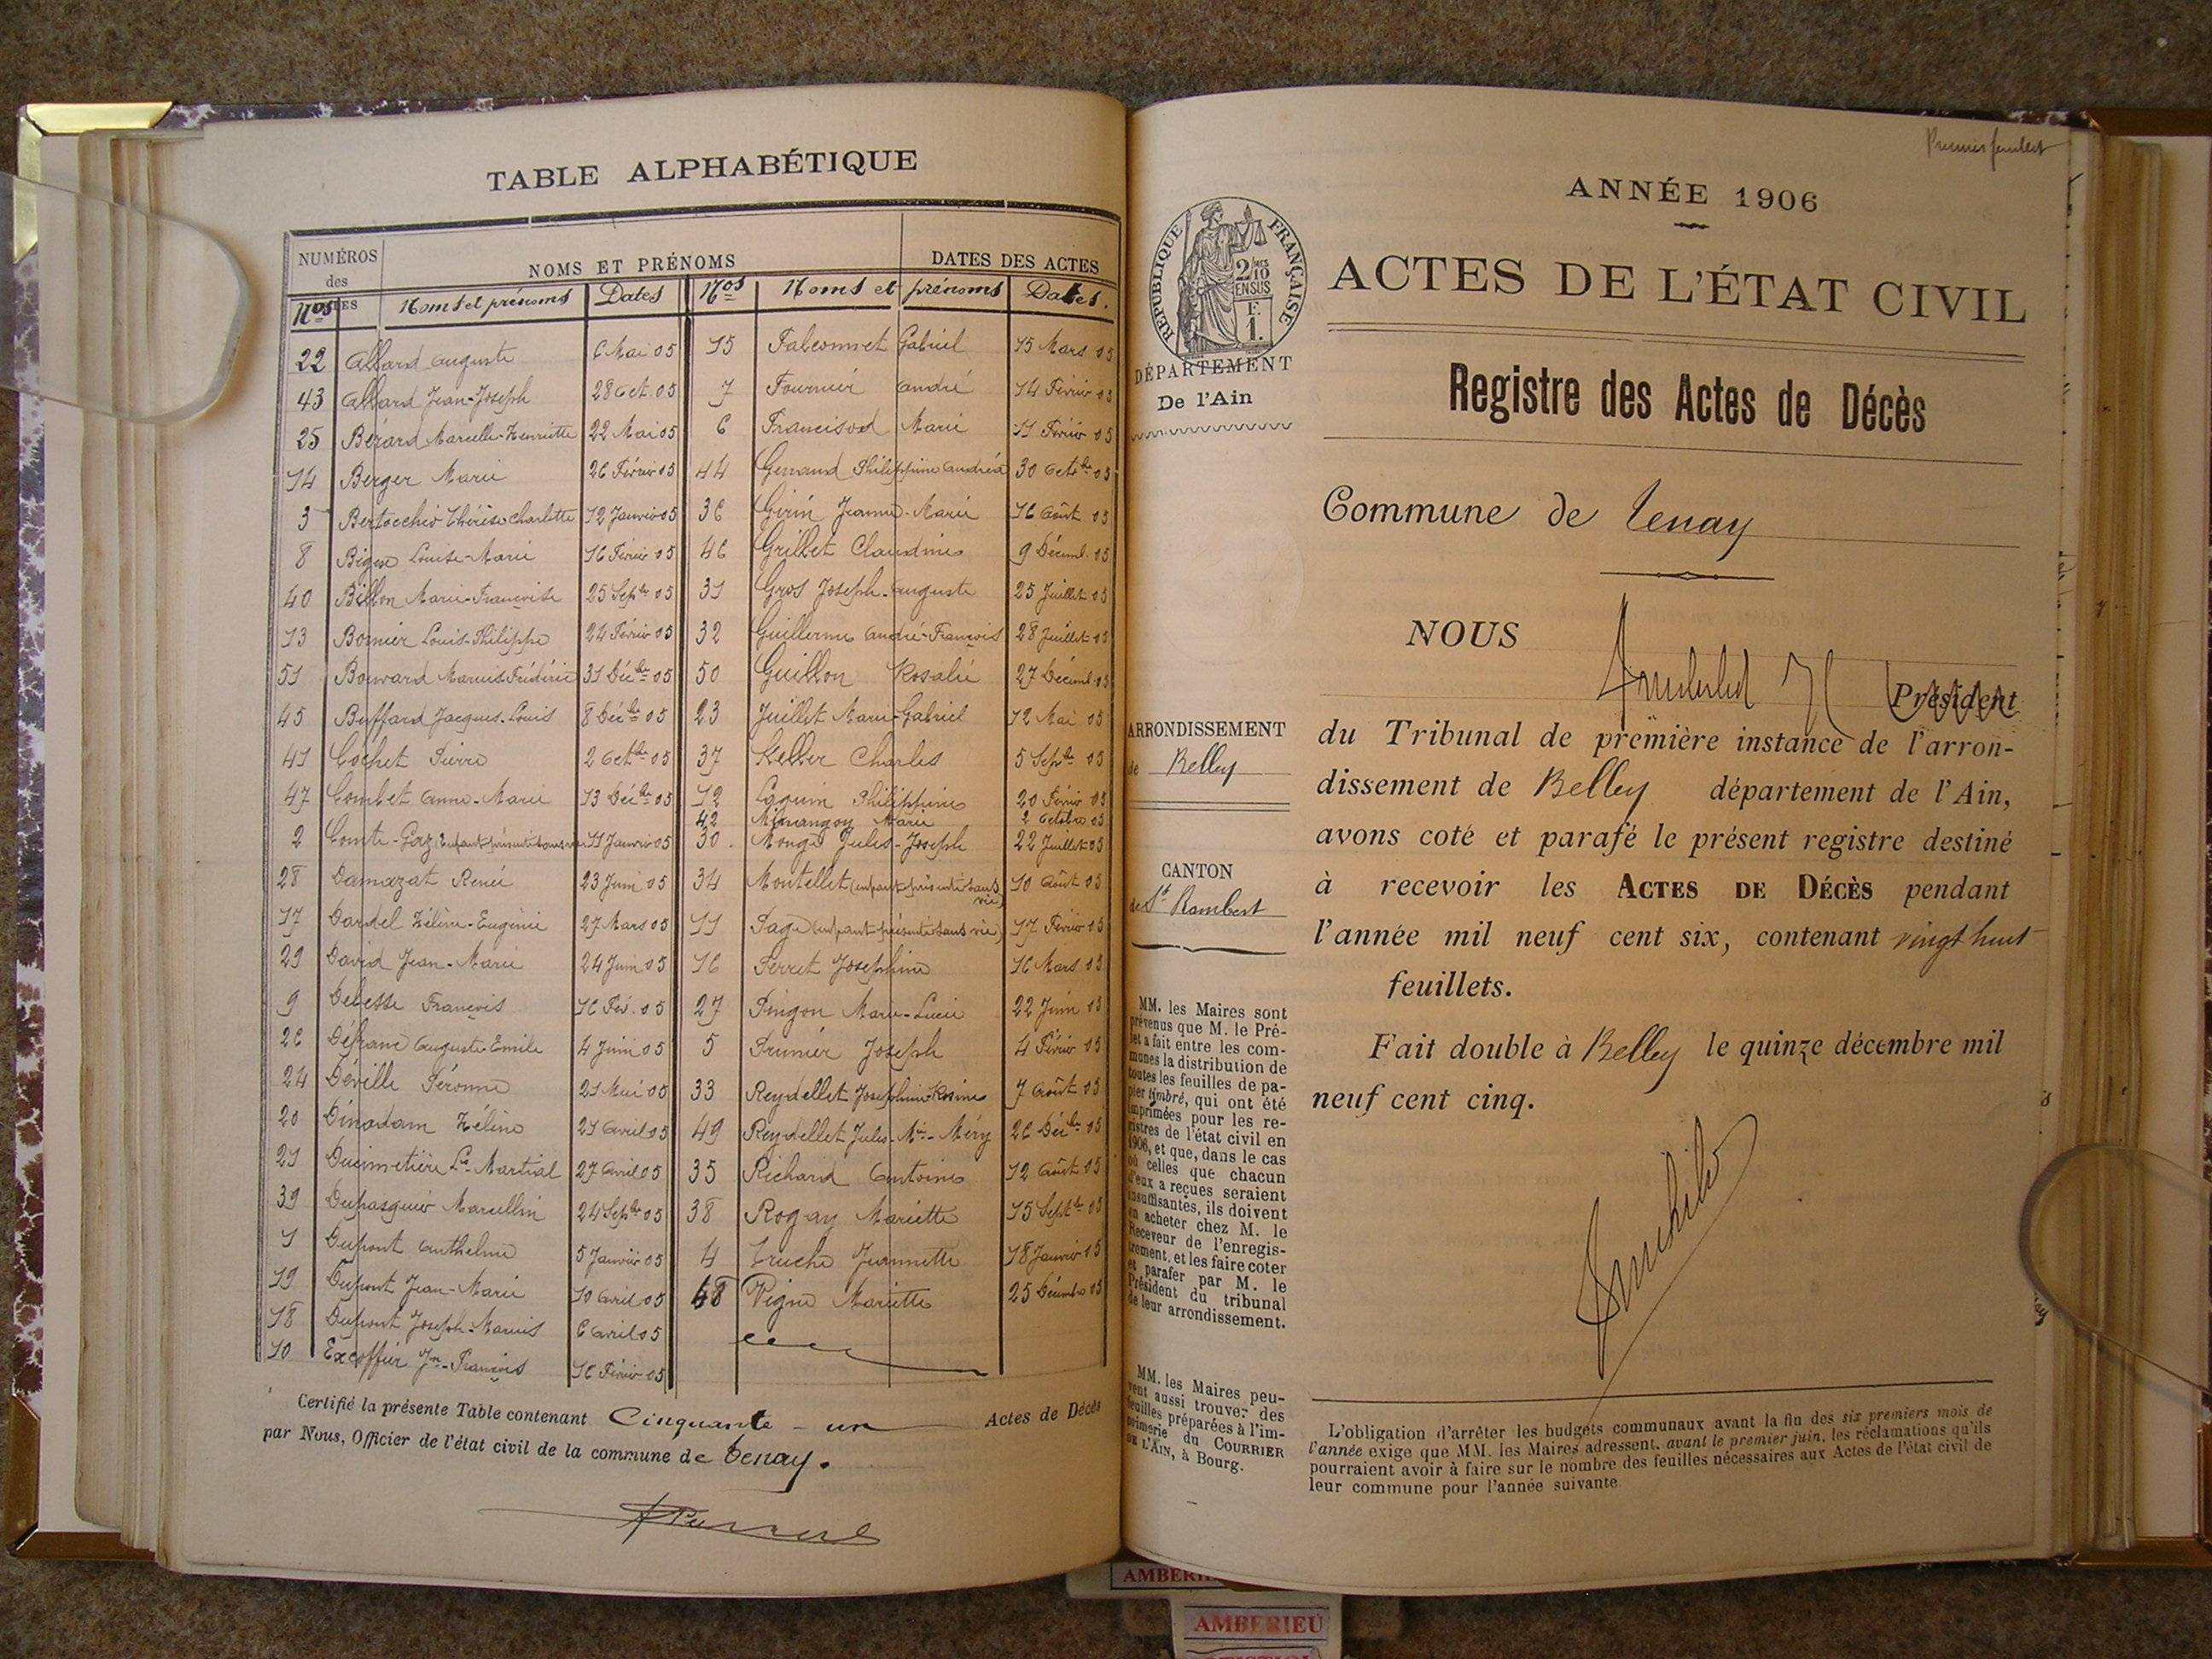 TABLE ALPHABÉTIQUE
NUMÉROS
des
NOMS ET PRÉNOMS
DATES DES ACTES
Nos Noms et prénoms Dates Nos Noms et prénoms Dates.
22 Allard Auguste 6 Mai 05 15 Falconnet Gabriel 15 Mars 05
43 Allard Jean-Joseph 28 Oct. 05 7 Fournier André 14 Février 05
25 Bérard Marcelle-Henriette 22 Mai 05 6 Francisod Marie 11 Février 05
14 Berger Marie 26 Février 05 44 Philippine Andréa 30 Octbre 05
3 Bertocchio Thérèse Charlotte 12 Janvier 05 36 Girin Jeanne-Marie 16 Août 05
8 Louise-Marie 16 Février 05 46 Grillet Claudine 9 Décemb. 05
40 Billon Marie-Françoise 25 Septbre 05 31 Gros Joseph-Auguste 25 Juillet 05
13 Louis-Philippe 24 Février 05 32 Guillerme André-François 28 Juillet 05
51 Marius Frédéric 31 Décbre 05 50 Guillon Rosalie 27 Décemb. 05
45 Buffard Jacques-Louis 8 Décbre 05 23 Juillet Marie-Gabriel 12 Mai 05
41 Cochet Pierre 2 Octbre 05 37 Keller Charles 5 Septbre 05
47 Combet Anne-Marie 13 Décbre 05 12 Philippine 20 Février 05
42 Marie 2 Octobre 05
2 Comte-Gaz (Enfant présenté sans vie) 11 Janvier 05 30. Monge Jules-Joseph 22 Juillet 05
28 Damazat René 23 Juin 05 34 Montellet (enfant présenté sans vie) 10 Août 05
17 Dardel Hélène-Eugénie 27 Mars 05 11 Page (enfant présenté sans vie) 17 Février 05
29 David Jean-Marie 24 Juin 05 16 Perret Joséphine 16 Mars 05
9 François 16 Fév. 05 27 Pingon Marie-Lucie 22 Juin 05
26 Défranc Auguste-Emile 4 Juin 05 5 Prunier Joseph 4 Février 05
24 Déville Péronne 21 Mai 05 33 Reydellet Joséphine-Rosine 7 Août 05
20 Dinadam Hélène 21 Avril 05 49 Reydellet Jules-Mie-Méry 26 Décbre 05
21 Martial 27 Avril 05 35 Richard Antoine 12 Août 05
39 Dupasquier Marcellin 24 Septbre 05 38 Rogay Mariette 15 Septbre 05
1 Dupont Anthelme 5 Janvier 05 4 Truche Jeannette 18 Janvier 05
19 Dupont Jean-Marie 10 Avril 05 48 Vigne Mariette 25 Décembre 05
18 Dupont Joseph-Marius 6 Avril 05
10 Excoffier Jn-François 16 Février 05
Certifié la présente Table contenant Cinquante-un Actes de Décès
par Nous, Officier de l'état civil de la commune de Tenay.
Premier feuillet
ANNÉE 1906
ACTES DE L'ÉTAT CIVIL
RÉPUBLIQUE FRANÇAISE
2/10
EN SUS
F.
1.
DÉPARTEMENT
De l'Ain
Registre des Actes de Décès
Commune de Tenay
NOUS
Président
ARRONDISSEMENT
de Belley
du Tribunal de première instance de l'arron-
dissement de Belley département de l'Ain,
avons coté et parafé le présent registre destiné
à recevoir les ACTES DE DÉCÈS pendant
l'année mil neuf cent six, contenant vingt huit
feuillets.
CANTON
de St Rambert
Fait double à Belley le quinze décembre mil
neuf cent cinq.
MM. les Maires sont
prévenus que M. le Pré-
fet a fait entre les com-
munes la distribution de
toutes les feuilles de pa-
pier timbré, qui ont été
imprimées pour les re-
gistres de l'état civil en
1906, et que, dans le cas
où celles que chacun
d'eux a reçues seraient
insuffisantes, ils doivent
en acheter chez M. le
Receveur de l'enregis-
trement, et les faire coter
et parafer par M. le
Président du tribunal
de leur arrondissement.
MM. les Maires peu-
vent aussi trouver des
feuilles préparées à l'im-
primerie du COURRIER
DE L'AIN, à Bourg.
L'obligation d'arrêter les budgets communaux avant la fin des six premiers mois de
l'année exige que MM. les Maires adressent, avant le premier juin, les réclamations qu'ils
pourraient avoir à faire sur le nombre des feuilles nécessaires aux Actes de l'état civil de
leur commune pour l'année suivante
AMBERIEU